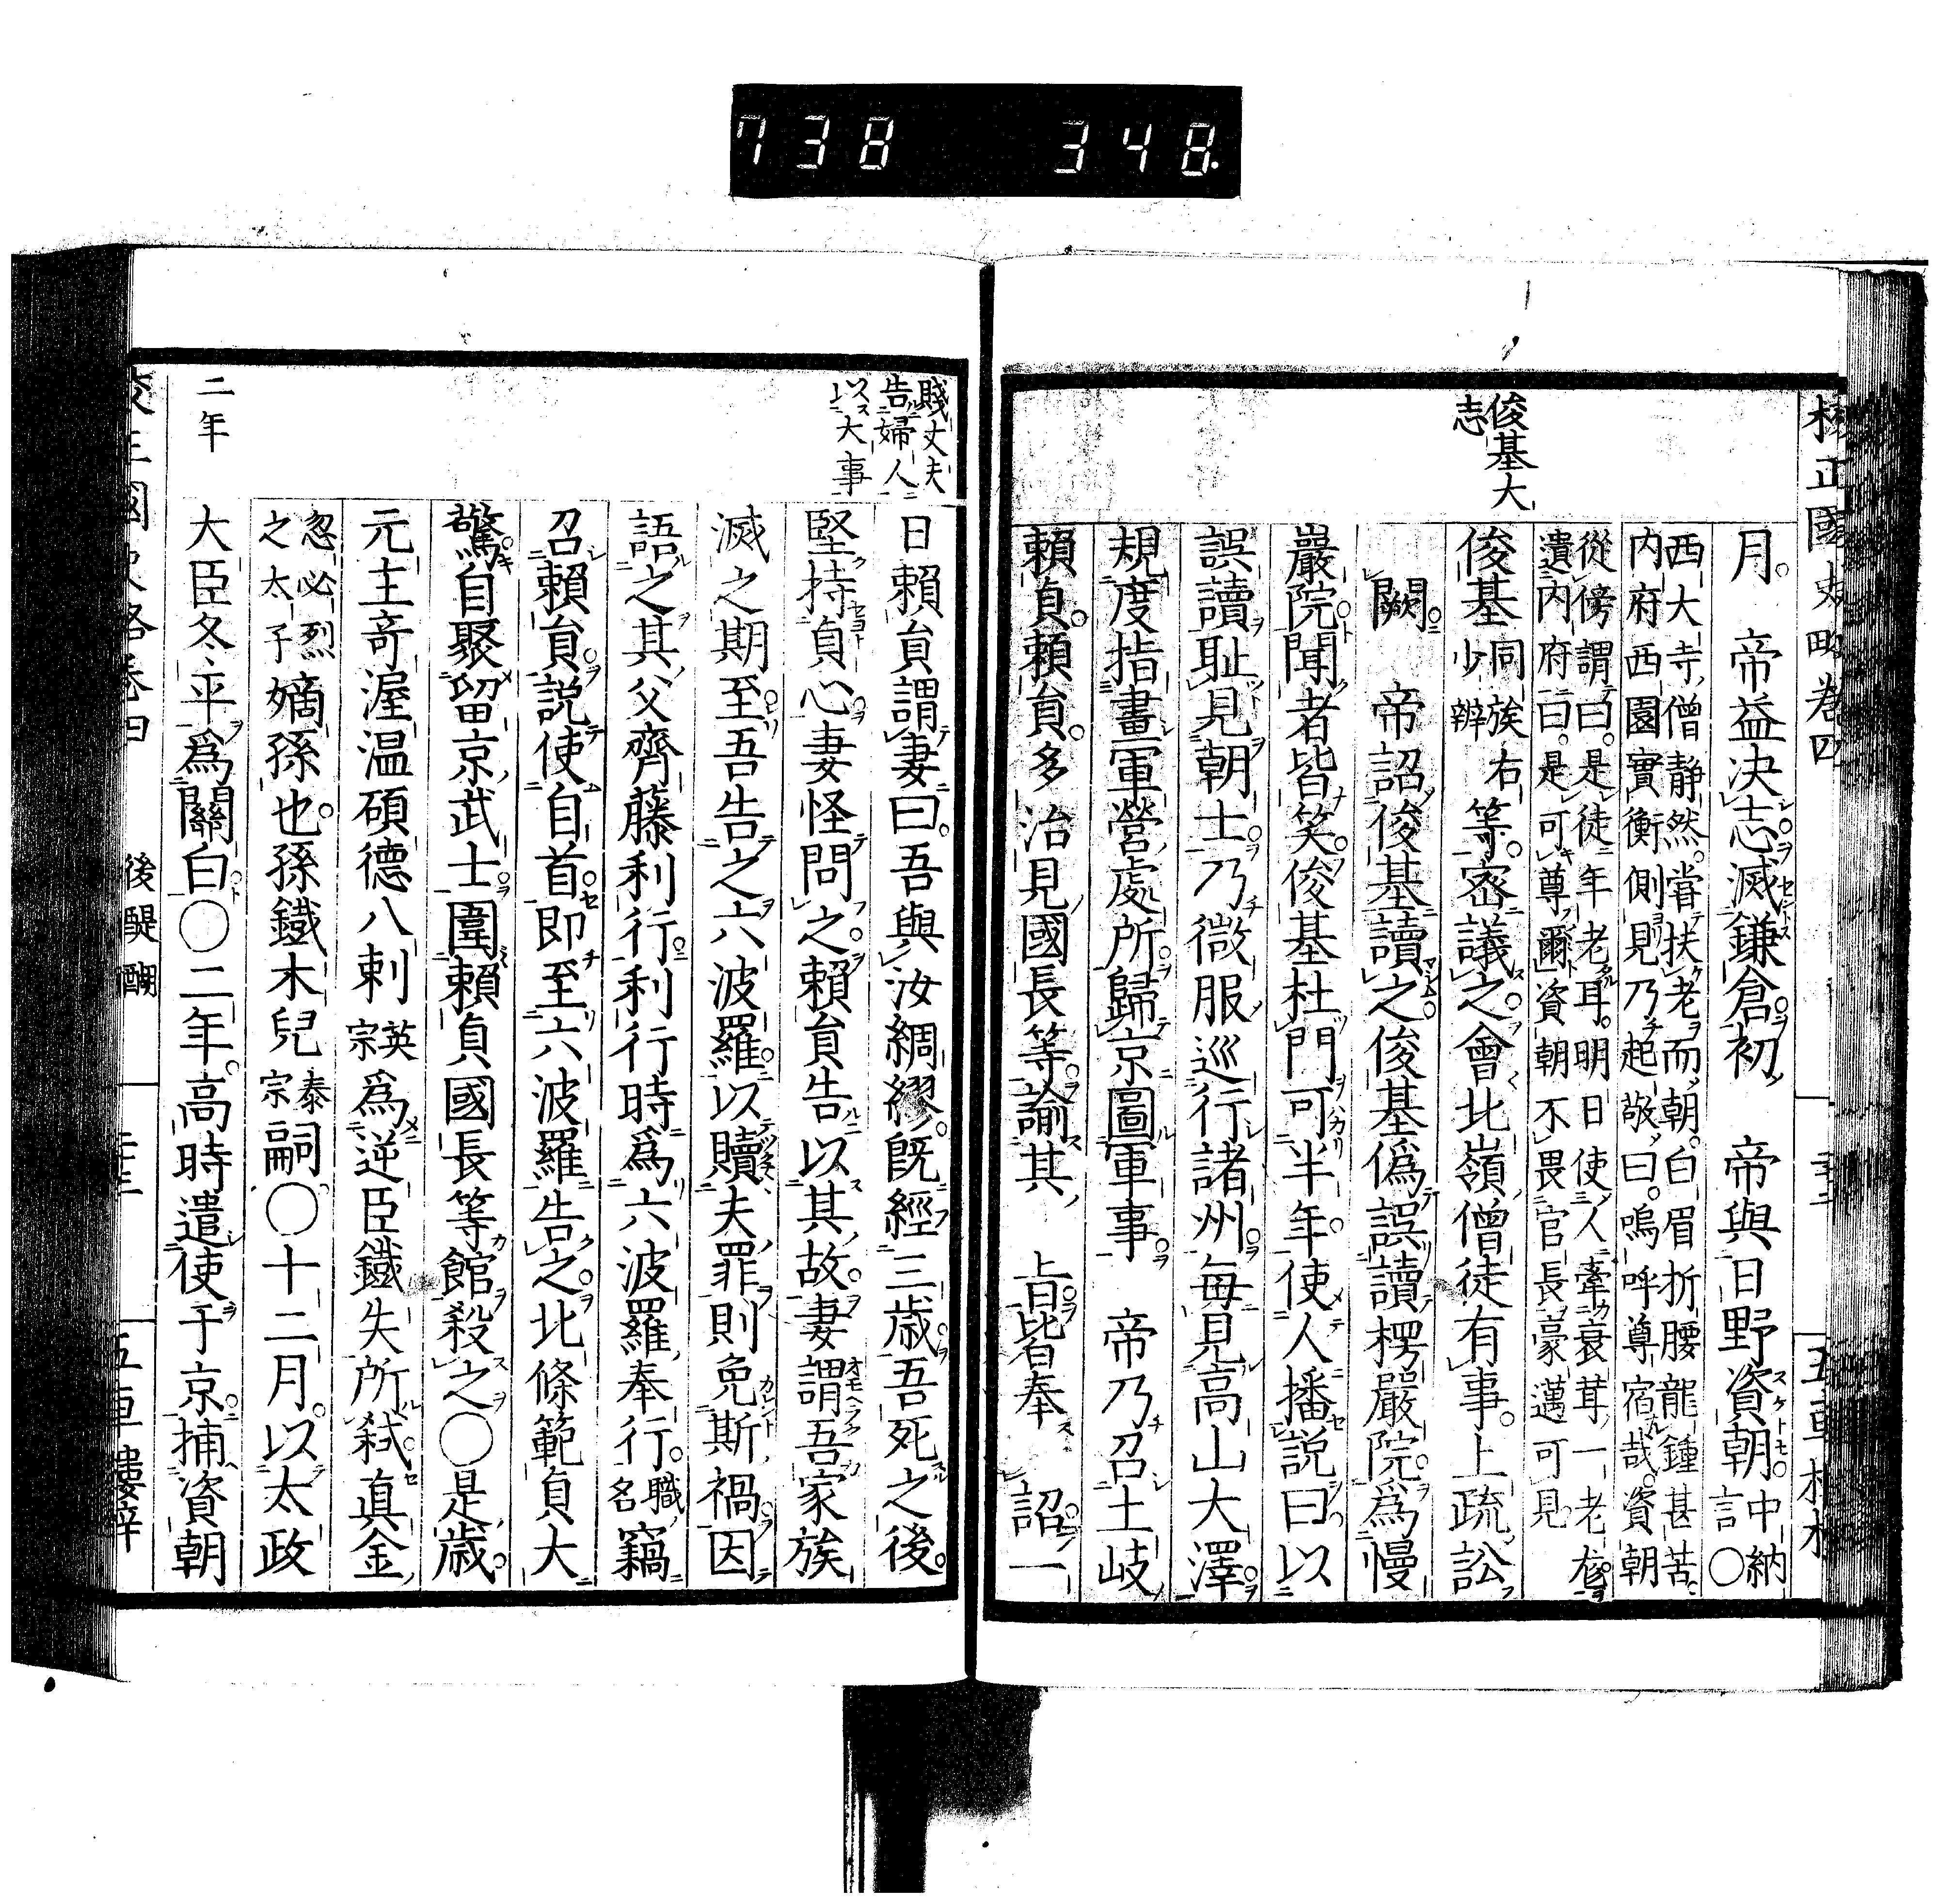 738 348
校正國史略卷四
俊基大
志
月。帝益決志滅鎌倉。初帝與日野資朝。中納言○
西大寺僧静然。嘗扶老而朝。白眉折腰龍鍾甚苦。
内府西園實衡側見乃起敬曰。嗚呼尊宿哉。資朝
從傍謂曰。是徒年老耳。明日使人牽衰茸一老尨。
遺内府曰。是可尊爾。資朝不畏官長豪邁可見
俊基同族右少辨等。密議之。會比嶺僧徒有事。上疏訟
闕。帝詔俊基讀之。俊基僞誤讀楞嚴院。爲慢
嚴院。聞者皆笑。俊基杜門可半年。使人播説曰以
誤讀耻見朝士。乃微服巡行諸州。毎見高山大澤。
規度指畫軍營處所。歸京圖軍事。帝乃召土岐
頼貞。頼貟。多治見國長等。諭其旨。皆奉詔。一
賤丈夫
告婦人
以大事
日頼貟謂妻曰。吾與汝綢繆。既經三歳。吾死之後。
堅持貞心。妻怪問之。頼貟告以其故。妻謂吾家族
滅之期至。吾告之六波羅。以贖夫罪。則免斯禍。因
語之其父齊藤利行。利行時爲六波羅奉行。職名竊
召頼貟。説使自首。即至六波羅告之。北條範貞大
驚。自聚留京武士。圍頼貞國長等館殺之。○是歳。
元主竒渥温碩德八剌英宗爲逆臣鐵失所弑。真金
忽必烈之太子嫡孫也。孫鐵木兒泰宗嗣○十二月。以太政
大臣冬平爲關白。○二年。高時遣使于京。捕資朝
二年
後醍醐